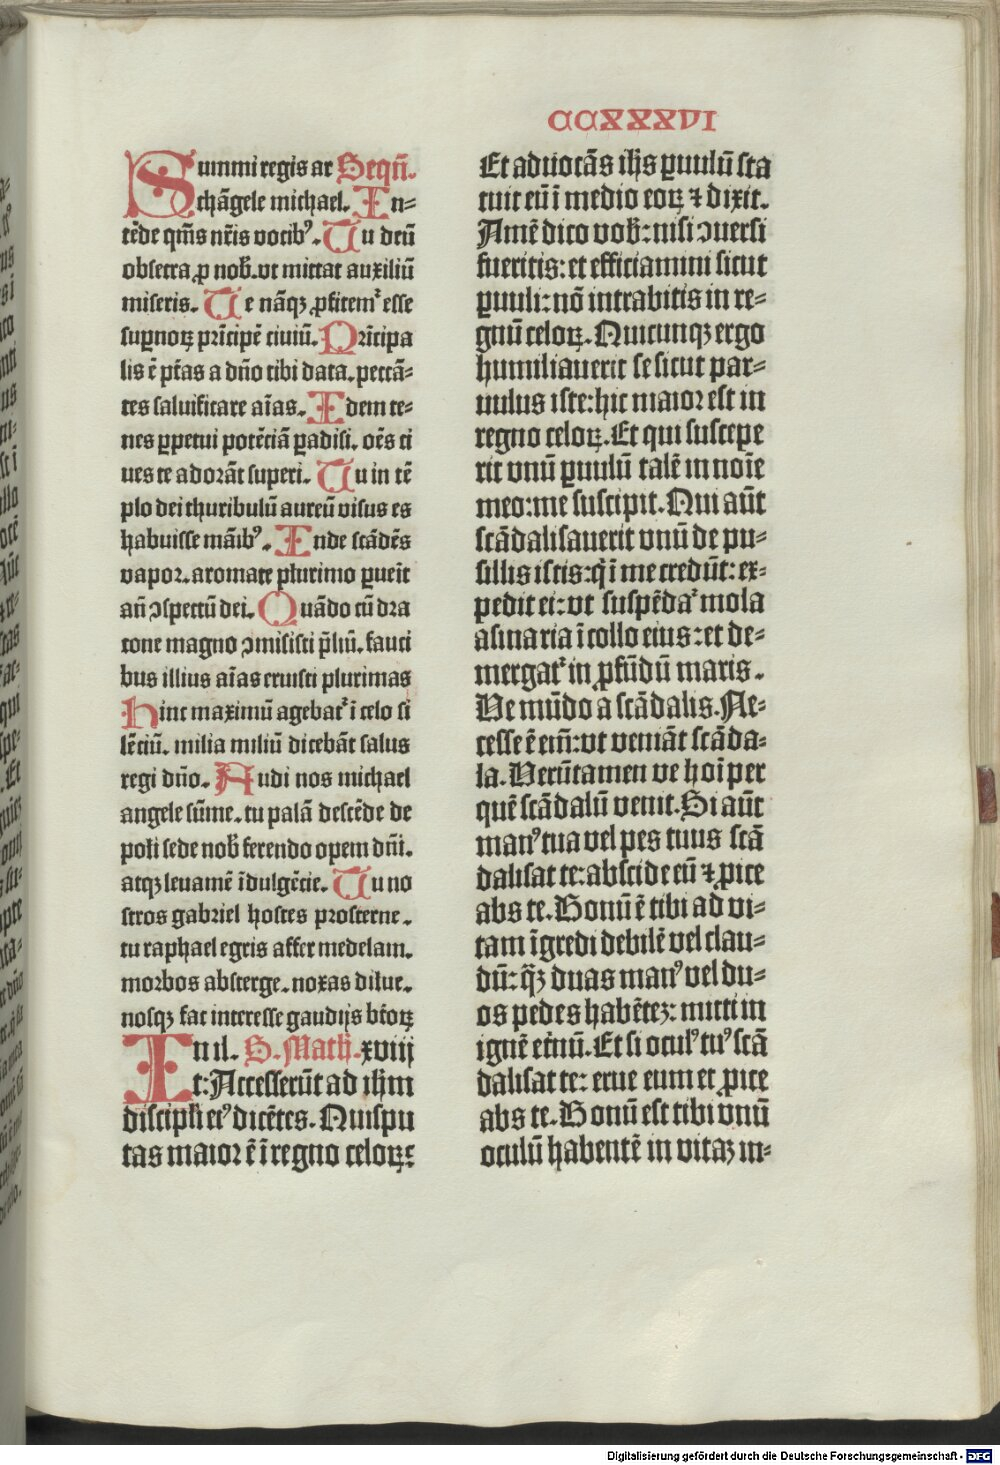 CCXXXVI
Summi regis ar Sequē.
chāgele michael. In-
tēde qm̄s nr̄is vocibꝰ. Tu deū
obsecra ꝓ nob̄. vt mittat auxiliū
miseris. Te nāqꝫ ꝓfitemᷣ esse
suꝑnoꝝ prīcipē civiū. Prīcipa
lis ē pt̄as a dn̄o tibi data. peccā-
tes salvificare aīas. Idem te-
nes ꝑpetui potēciā ꝑadisi. oēs ci
ves te adorāt superi. Tu in tē
plo dei thuribulū aureū visus es
habuisse māibꝰ. Inde scādēs
vapor. aromate plurimo ꝑveīt
an̄ ↄspectū dei. Quādo cū dra
cone magno ↄmisisti p̄liū. fauci
bus illius aīas eruisti plurimas
Hinc maximū agebatᷣ ī celo si
lēciū. milia miliū dicebāt salus
regi dn̄o. Audi nos michael
angele sūme. tu palā descēde de
poli sede nob̄ ferendo opem dn̄i.
atqꝫ levamē īdulgēcie. Tu no
stros gabriel hostes prosterne.
tu raphael egris affer medelam.
morbos absterge. noxas dilue.
nosqꝫ fac interesse gaudijs bt̄oꝝ
In il. S. Math̄. xviij
t: Accesserūt ad ih̄m
discipli eiꝰ dicētes. Quis pu
tas maior ē ī regno celoꝝ:
Et advocās ih̄s ꝑvulū sta
tuit eū ī medio eoꝝ ⁊ dixit.
Amē dico vob̄: nisi ↄversi
fueritis: et efficiamini sicut
ꝑvuli: nō intrabitis in re-
gnū celoꝝ. Quicunqꝫ ergo
humiliaverit se sicut par-
vulus iste: hic maior est in
regno celoꝝ. Et qui suscepe
rit vnū ꝑvulū talē in noīe
meo: me suscipit. Qui aūt
scādalisaverit vnū de pu-
sillis istis: q̄ ī me credūt: ex-
pedit ei: vt suspēdaᷣ mola
asinaria ī collo eius: et de-
mergatᷣ in ꝓfūdū maris.
Ve mūdo a scādalis. Ne-
cesse ē eīm: vt veniāt scāda-
la. Verūtamen ve hoī per
quē scādalū venit. Si aūt
manꝰ tua vel pes tuus scā
dalisat te: abscide eū ⁊ ꝓice
abs te. Bonū ē tibi ad vi-
tam īgredi debilē vel clau-
dū: q̄ꝫ duas manꝰ vel du-
os pedes habēteꝫ: mitti in
ignē et̄nū. Et si oculꝰ tuꝰ scā
dalisat te: erue eum et ꝓice
abs te. Bonū est tibi vnū
oculū habentē in vitaꝫ in-
Digitalisierung gefördert durch die Deutsche Forschungsgemeinschaft - DFG